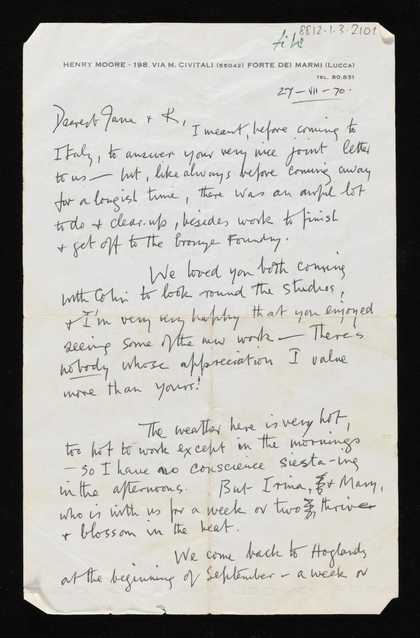 8812.1.3.2101
file
HENRY MOORE - 198, VIA M. CIVITALI (55042) FORTE DEI MARMI (LUCCA)
TEL. 80.831
27-VII-70.
Dearest Jane & K,
I meant, before coming to
Italy, to answer your very nice joint letter
to us — but, like always before coming away
for a longish time, there was an awful lot
to do & clear-up, besides work to finish
& get off to the Bronze Foundry.
We loved you both coming
with Colin to look round the studios,
& I'm very very happy that you enjoyed
seeing some of the new work — There's
nobody whose appreciation I value
more than yours!
The weather here is very hot,
too hot to work except in the mornings
— so I have no conscience siesta-ing
in the afternoons. But Irina, & Mary,
who is with us for a week or two, thrive
& blossom in the heat.
We come back to Hoglands
at the beginning of September — a week or